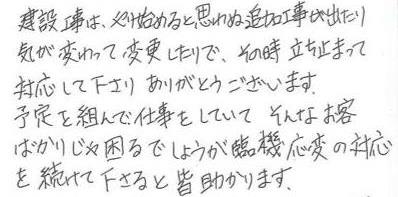 建設工事は、やり始めると思わぬ追加工事が出たり
気が変わって変更したりで、その時立ち止まって
対応して下さり ありがとうございます。
予定を組んで仕事をしていて そんなお客
ばかりじゃ困るでしょうが臨機応変の対応
を続けて下さると皆助かります。